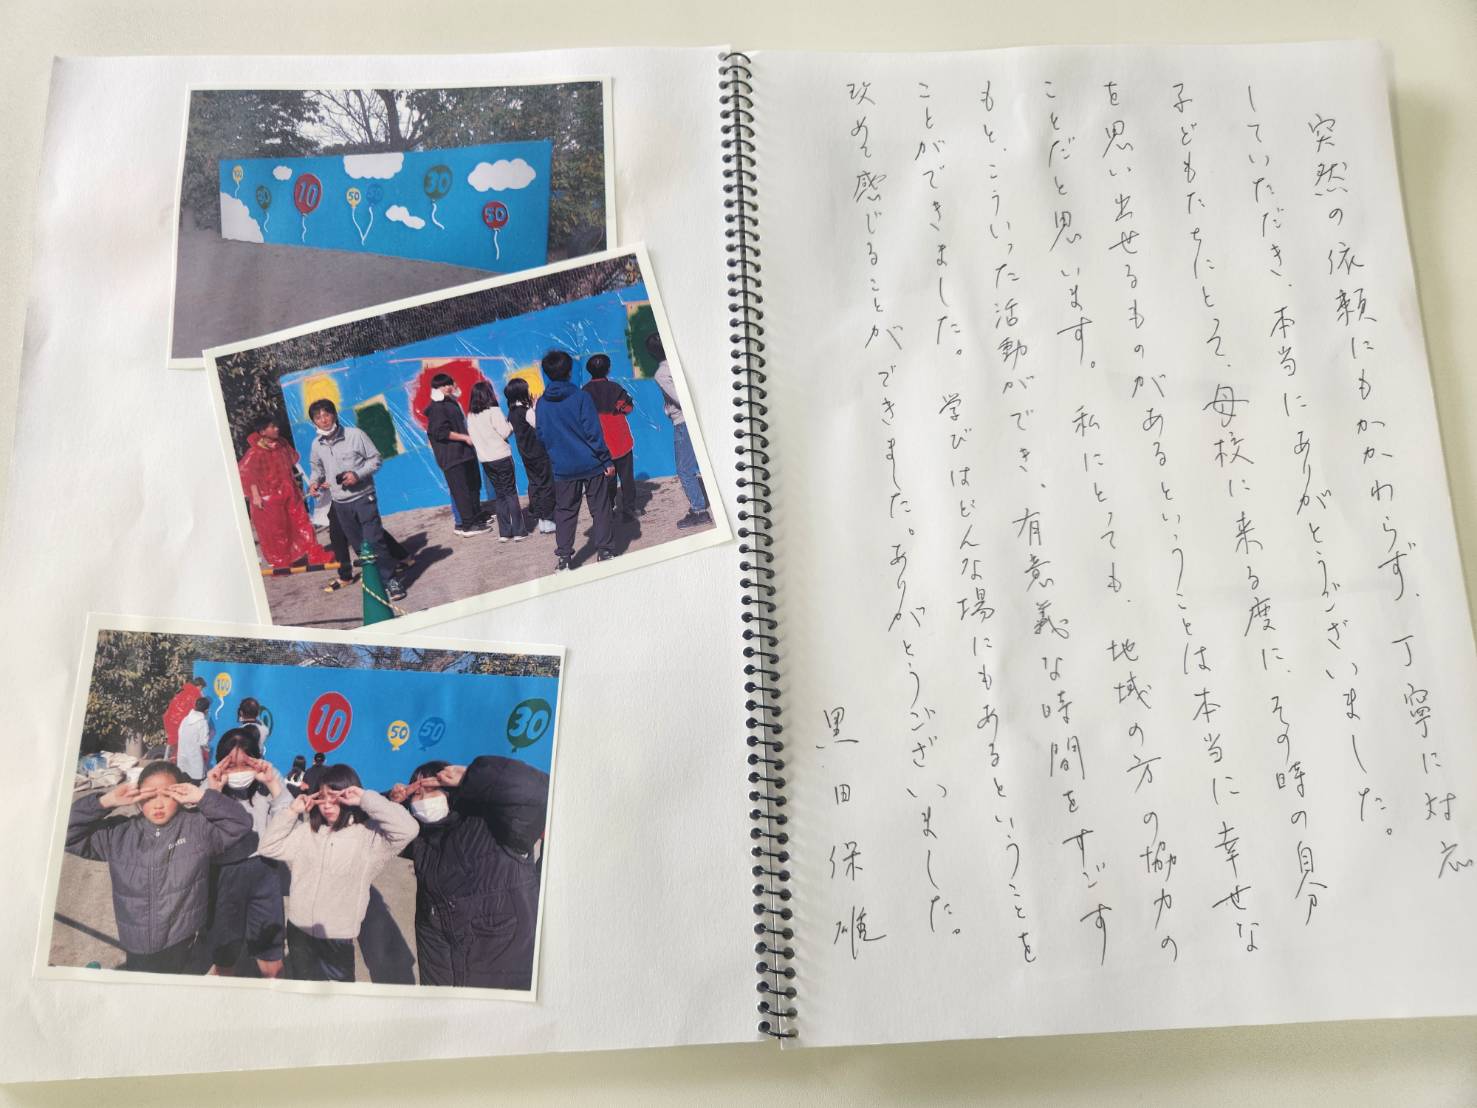 100
10
50
50
30
50
100
10
50
50
30
突然の依頼にもかかわらず、丁寧に対応
していただき、本当にありがとうございました。
子どもたちにとって、母校に来る度に、その時の自分
を思い出せるものがあるということは本当に幸せな
ことだと思います。私にとっても、地域の方の協力の
もと、こういった活動ができ、有意義な時間をすごす
ことができました。学びはどんな場にもあるということを
改めて感じることができました。ありがとうございました。
黒田保雄